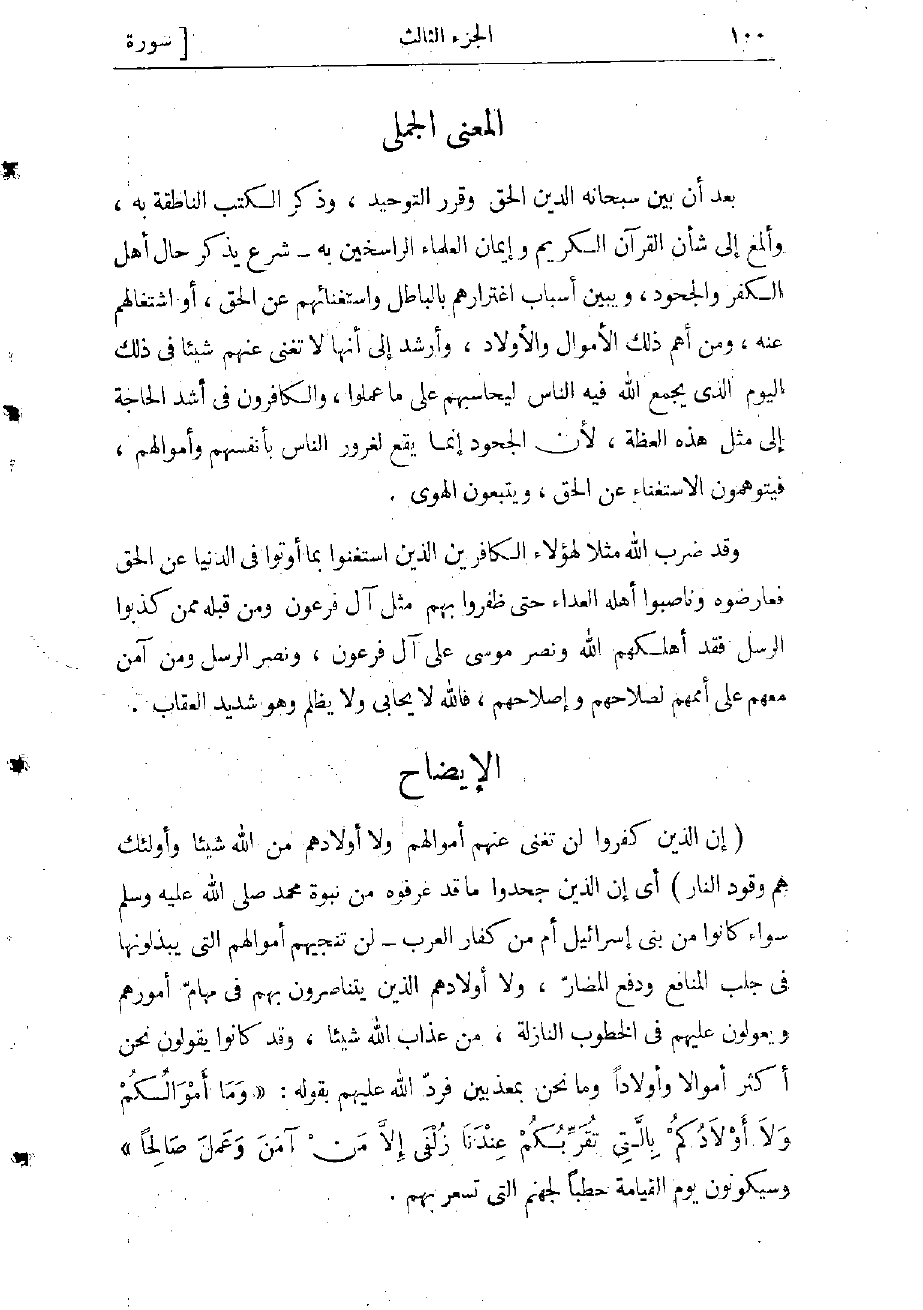 ١٠٠ الجزء الثالث [ سورة
المعنى الجملى
بعد أن بين سبحانه الدين الحق وقرر التوحيد ، وذكر الكتب الناطقة به ،
وألمع إلى شأن القرآن الكريم وإيمان العلماء الراسخين به – شرع يذكر حال أهل
الكفر والجحود ، ويبين أسباب اغترارهم بالباطل واستغنائهم عن الحق ، أو اشتغالهم
عنه ، ومن أهم ذلك الأموال والأولاد ، وأرشد إلى أنها لا تغنى عنهم شيئا فى ذلك
اليوم الذى يجمع الله فيه الناس ليحاسبهم على ما عملوا ، والكافرون فى أشد الحاجة
إلى مثل هذه العظة ، لأن الجحود إنما يقع لغرور الناس بأنفسهم وأموالهم ،
فيتوهمون الاستغناء عن الحق ، ويتبعون الهوى .
وقد ضرب الله مثلا لهؤلاء الكافرين الذين استغنوا بما أوتوا فى الدنيا عن الحق
فعارضوه وناصبوا أهله العداء حتى ظفروا بهم مثل آل فرعون ومن قبله ممن كذبوا
الرسل فقد أهلكهم الله ونصر موسى على آل فرعون ، ونصر الرسل ومن آمن
معهم على أممهم لصلاحهم وإصلاحهم ، فالله لا يحابى ولا يظلم وهو شديد العقاب .
الإيضاح
( إن الذين كفروا لن تغنى عنهم أموالهم ولا أولادهم من الله شيئا وأولئك
هم وقود النار ) أى إن الذين جحدوا ما قد عرفوه من نبوة محمد صلى الله عليه وسلم
سواء كانوا من بنى إسرائيل أم من كفار العرب – لن تنجيهم أموالهم التى يبذلونها
فى جلب المنافع ودفع المضارّ ، ولا أولادهم الذين يتناصرون بهم فى مهامّ أمورهم
ويعولون عليهم فى الخطوب النازلة ، من عذاب الله شيئا ، وقد كانوا يقولون نحن
أكثر أموالا وأولاداً وما نحن بمعذبين فردّ الله عليهم بقوله : « وَمَا أَمْوَالُكُمْ
وَلاَ أَوْلاَدُكُمْ بِالَّتِى تُقَرِّبُكُمْ عِنْدَنَا زُلْفَى إِلاَّ مَنْ آمَنَ وَعَمِلَ صَالِحًا »
وسيكونون يوم القيامة حطباً لجهنم التى تسعر بهم .